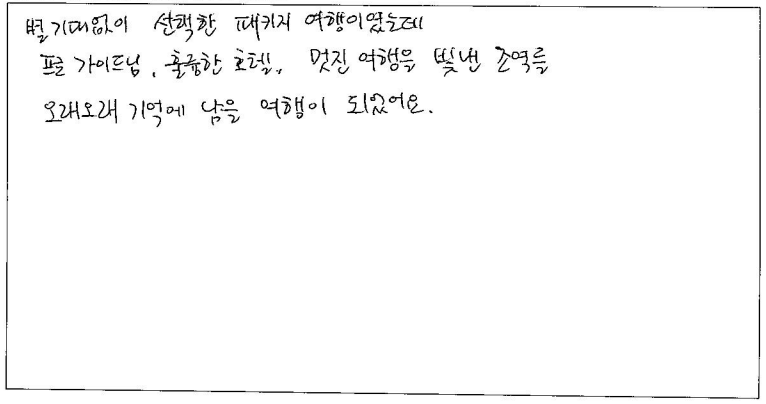 별 기대없이 선택한 패키지 여행이였는데
가이드님, 훌륭한 호텔, 멋진 여행을 빛낸 조역들
오래오래 기억에 남을 여행이 되었어요.